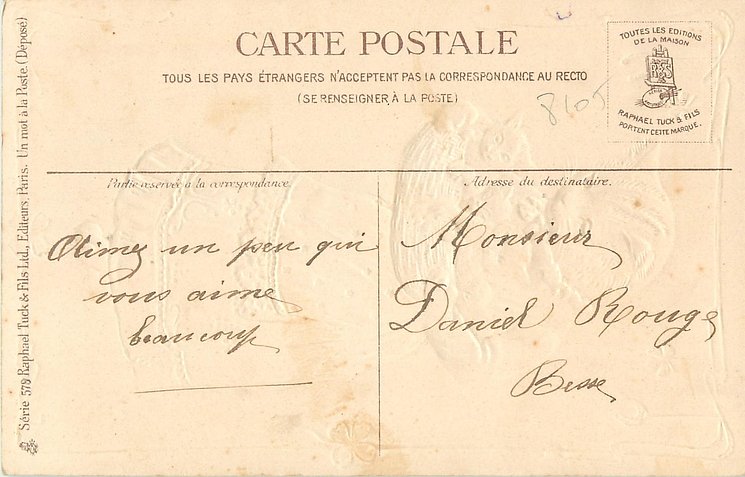 CARTE POSTALE
TOUS LES PAYS ÉTRANGERS N'ACCEPTENT PAS LA CORRESPONDANCE AU RECTO
(SE RENSEIGNER À LA POSTE)
TOUTES LES EDITIONS
DE LA MAISON
RAPHAEL TUCK & FILS
PORTENT CETTE MARQUE.
Partie reservée à la correspondance.
Aimez un peu qui
vous aime
beaucoup
Adresse du destinataire.
Monsieur
Daniel Rouge
Besse
Série 579 Raphael Tuck & Fils Ltd., Editeurs, Paris. Un mot à la Poste. (Déposé)